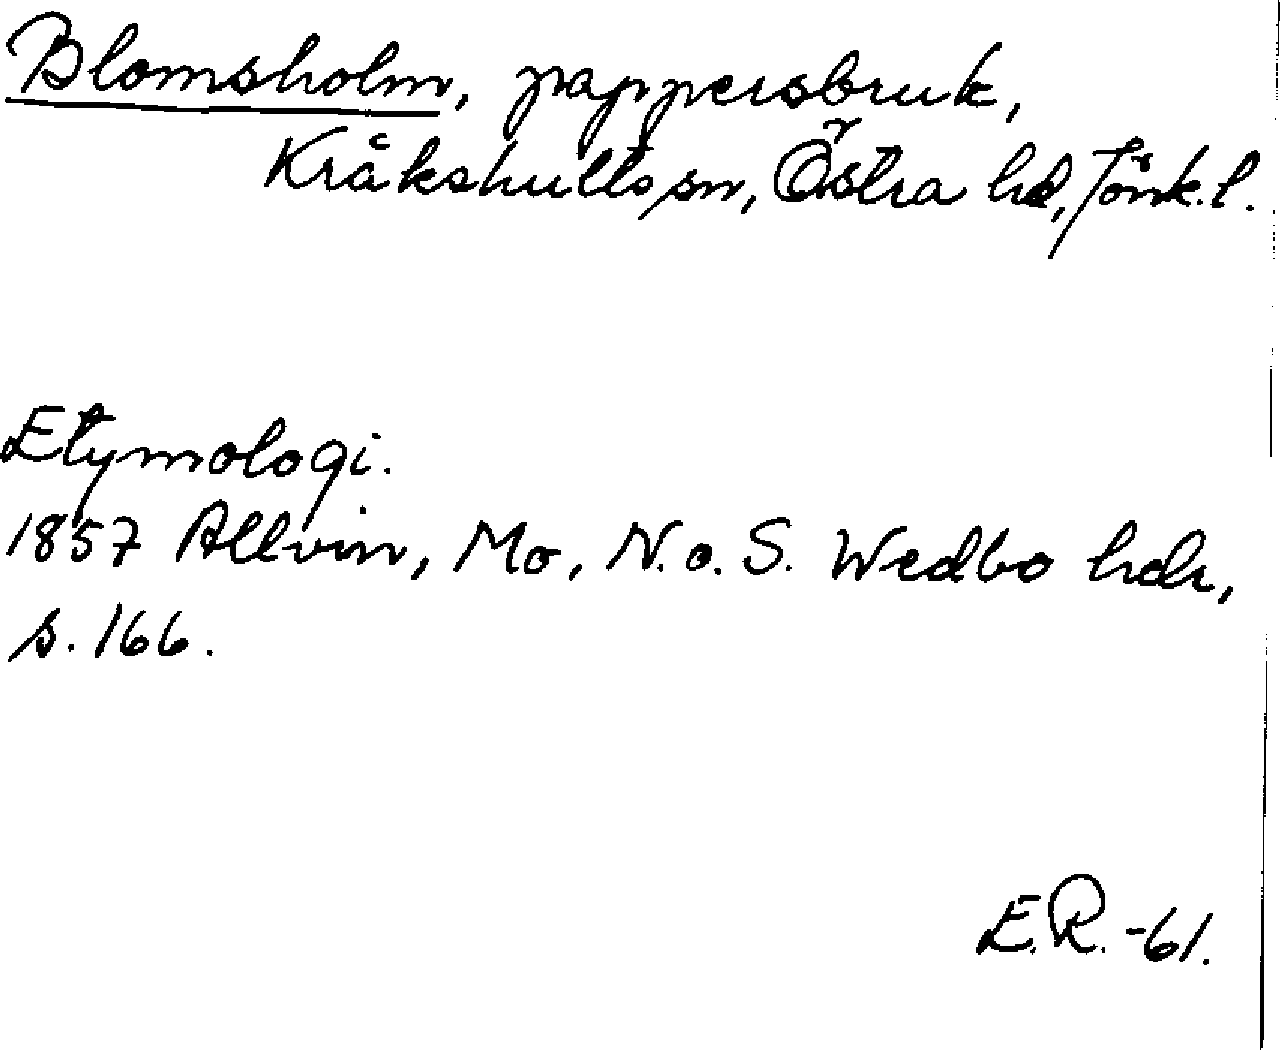 Blomsholm, pappersbruk,
Kråkshults sn, Östra hd, Jönk. l.
Etymologi.
1857 Allvin, Mo, N. o. S. Wedbo hdr,
s. 166.
E.R. -61.